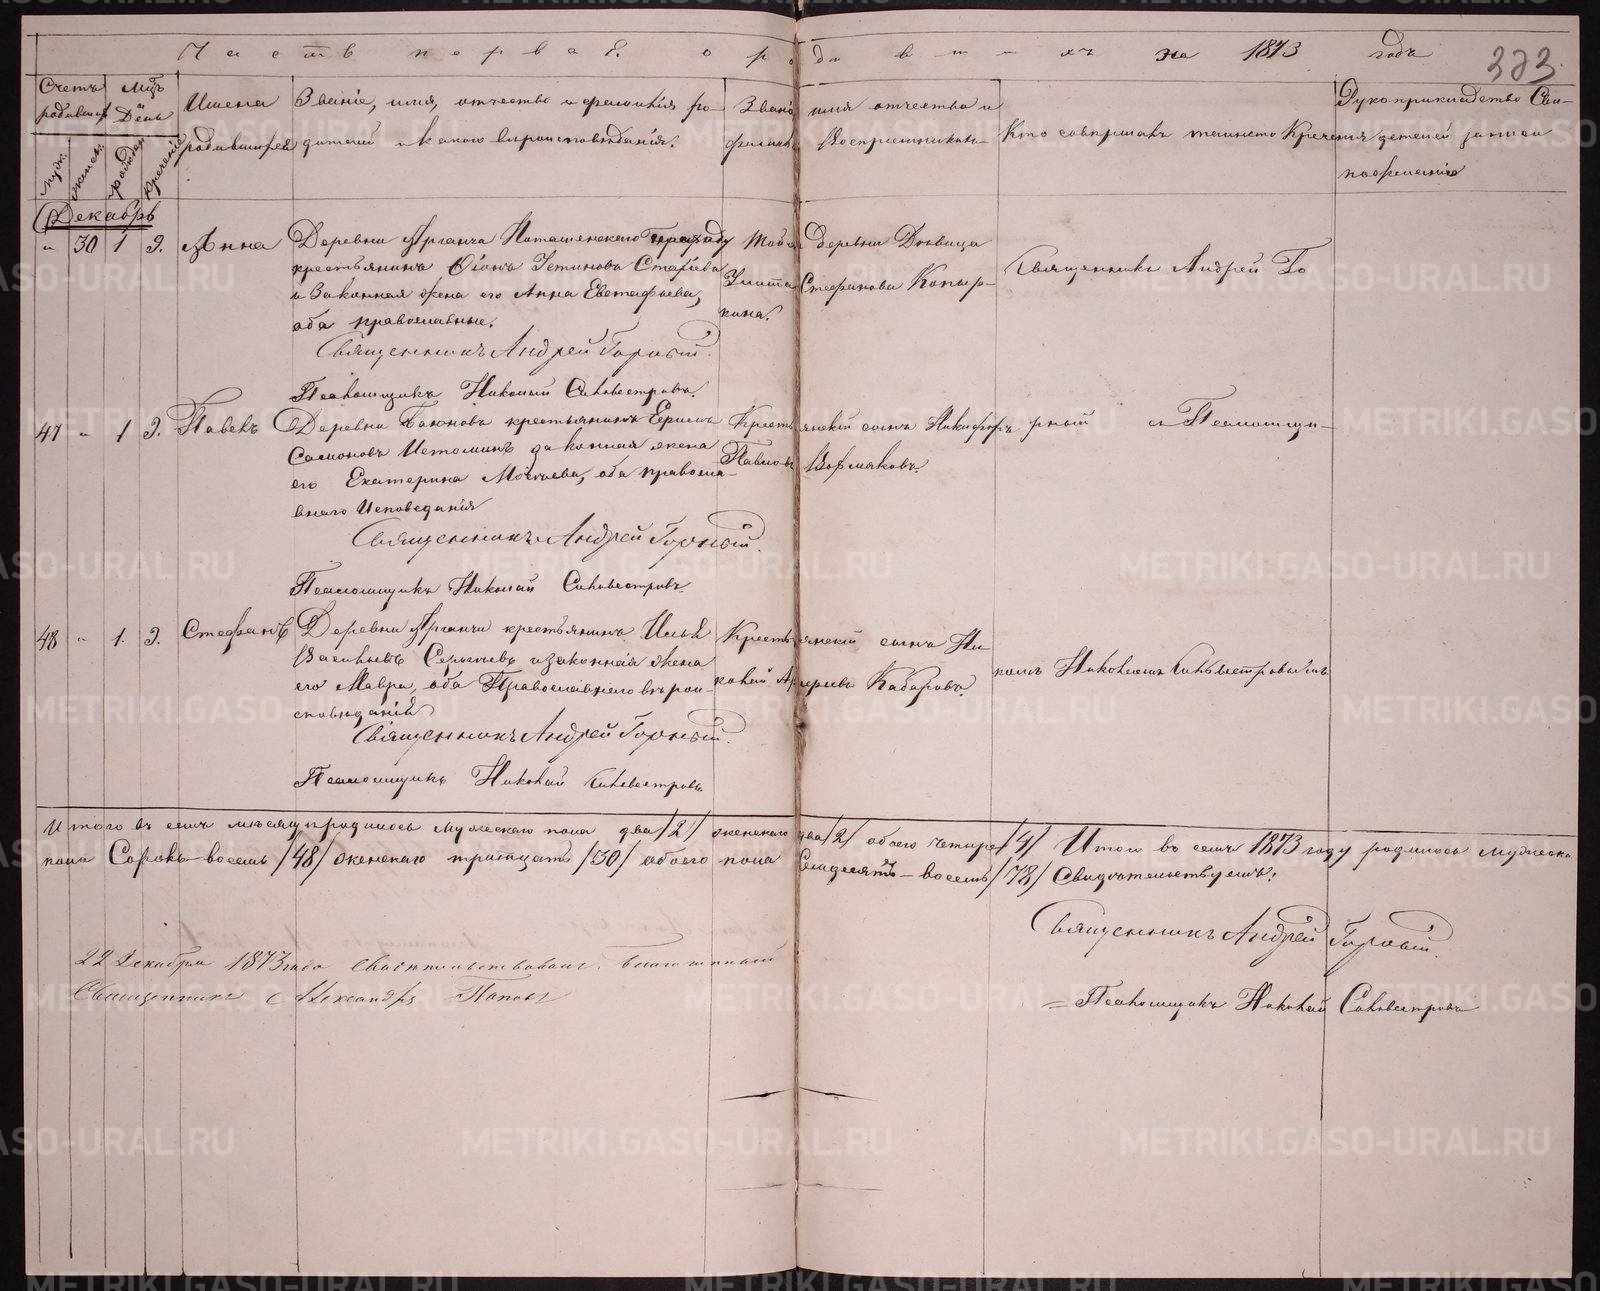 Часть первая о родившихъ на 1873 годъ
323
Счетъ родившихся
Мцъ и День
Имена родившихся
Званіе, имя, отчество и фамилія ро-
дителей и какого вѣроисповѣданія.
Званіе имя отчество и
фамилія Воспреемниковъ
Кто совершалъ таинство Крещенія
Рукоприкладство Сви-
дѣтелей записи
по желанію
муж.
женск.
рожденія
крещеніе
Декабрь
" 30 1 9. Анна
Деревни Арганча Поташенскаго
крестьянинъ Устиновъ
и Законная жена его Анна Евстафьева,
оба православные.
Священникъ Андрей Горный.
Псаломщикъ Николай Сильвестровъ.
Тойже деревни Дѣвица
Улита Стефанова Копыр-
кина.
Священникъ Андрей Го
47 " 1 9. Павелъ
Деревни крестьянинъ
Самоновъ Истоминъ законная жена
его Екатерина оба правосла-
внаго Исповеданія
Священникъ Андрей Горный.
Псаломщикъ Николай Сильвестровъ.
Крестьянскій сынъ Никифоръ
Павловъ
рный и Псаломщи-
48 " 1. 9. Стефанъ
Деревни Арганчи крестьянинъ Илья
Васильевъ и законная жена
его Мавра, оба Православнаго вѣрои-
сповѣданія
Священникъ Андрей Горный.
Псаломщикъ Николай Сильвестровъ.
Крестьянскій сынъ Ни-
колай Кабаровъ
комъ Николаемъ Сильвестровымъ
Итого въ семъ мѣсяцѣ родилось мужескаго пола два /2/ женскаго два /2/ обоего четыре /4/ Итого въ семъ 1873 году родилось мужеска
пола Сорокъ-восемь /48/ женскаго тридцать /30/ обоего пола Семдесятъ-восемь /78/ Свидѣтельствуемъ:
Священникъ Андрей Горный.
Псаломщикъ Николай Сильвестровъ
22 Декабря 1873 года свидѣтельствовалъ. Благочинный
Священникъ Александръ Поповъ
METRIKI.GASO-URAL.RU